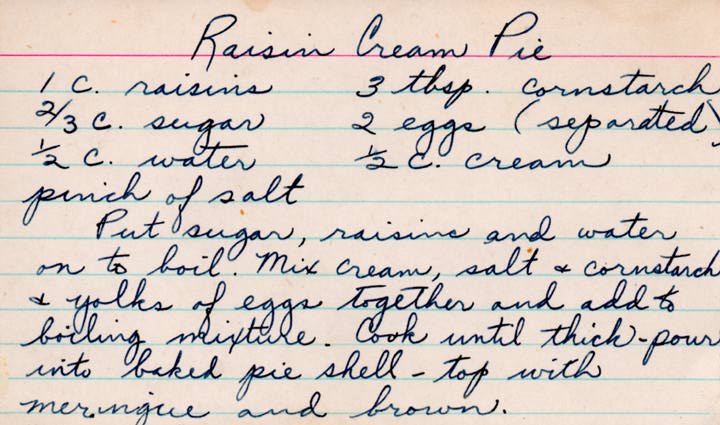 Raisin Cream Pie
1 c. raisins 3 tbsp. cornstarch
2/3 c. sugar 2 eggs (separated)
1/2 c. water 1/2 c. cream
pinch of salt
Put sugar, raisins and water
on to boil. Mix cream, salt & cornstarch
& yolks of eggs together and add to
boiling mixture. Cook until thick - pour
into baked pie shell - top with
meringue and brown.